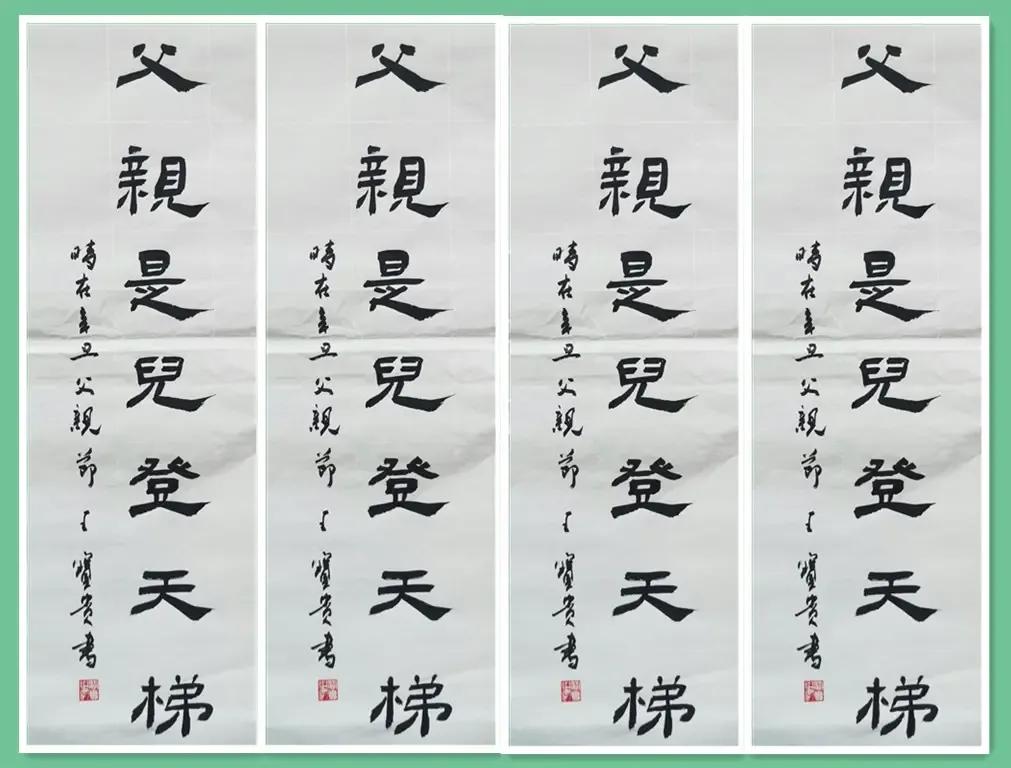 父親是兒登天梯
時在辛丑父親節王寶貴書
父親是兒登天梯
時在辛丑父親節王寶貴書
父親是兒登天梯
時在辛丑父親節王寶貴書
父親是兒登天梯
時在辛丑父親節王寶貴書